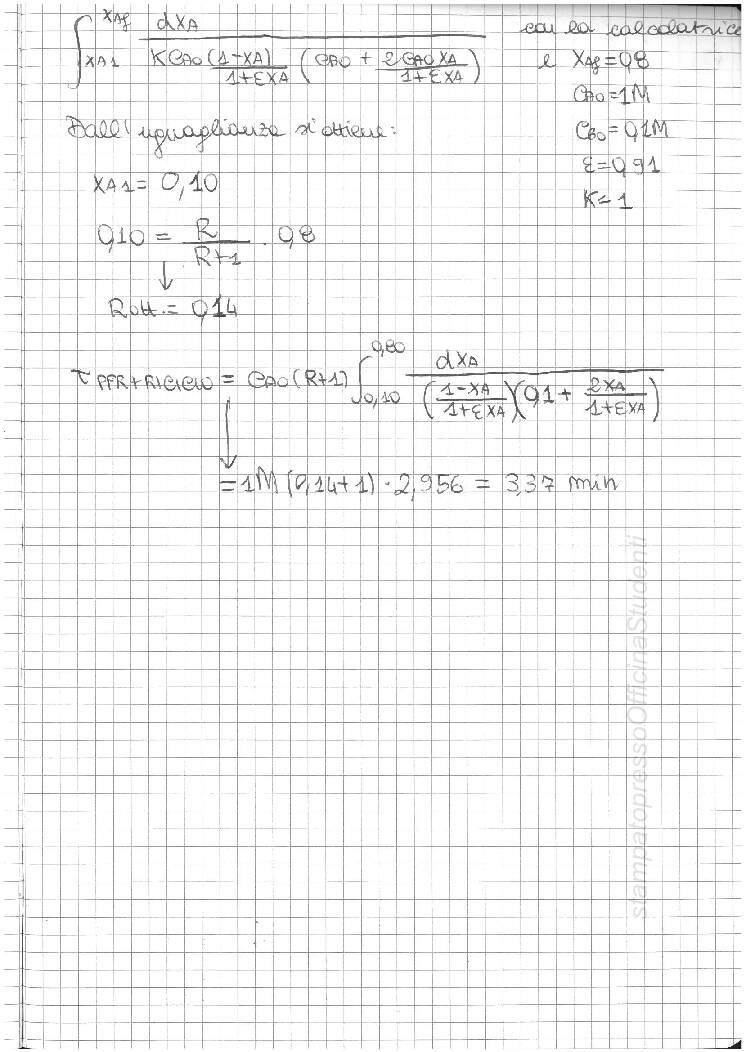 ∫_{XA1}^{XAf} dXA / (K CA0 (1-XA)/(1+εXA) (CB0 + 2CA0 XA/(1+εXA))) con la calcolatrice
e XAf=0,8
CA0=1M
Dall'uguaglianza si ottiene:
CB0=0,1M
ε=0,91
XA1= 0,10
K=1
0,10 = R/(R+1) · 0,8
↓
Rott.= 0,14
τ PFR+RICICLO = CA0(R+1) ∫_{0,10}^{0,80} dXA / ((1-XA)/(1+εXA))(0,1+ 2XA/(1+εXA))
↓
=1M (0,14+1) · 2,956 = 3,37 min
stampatopressoOfficinaStudenti